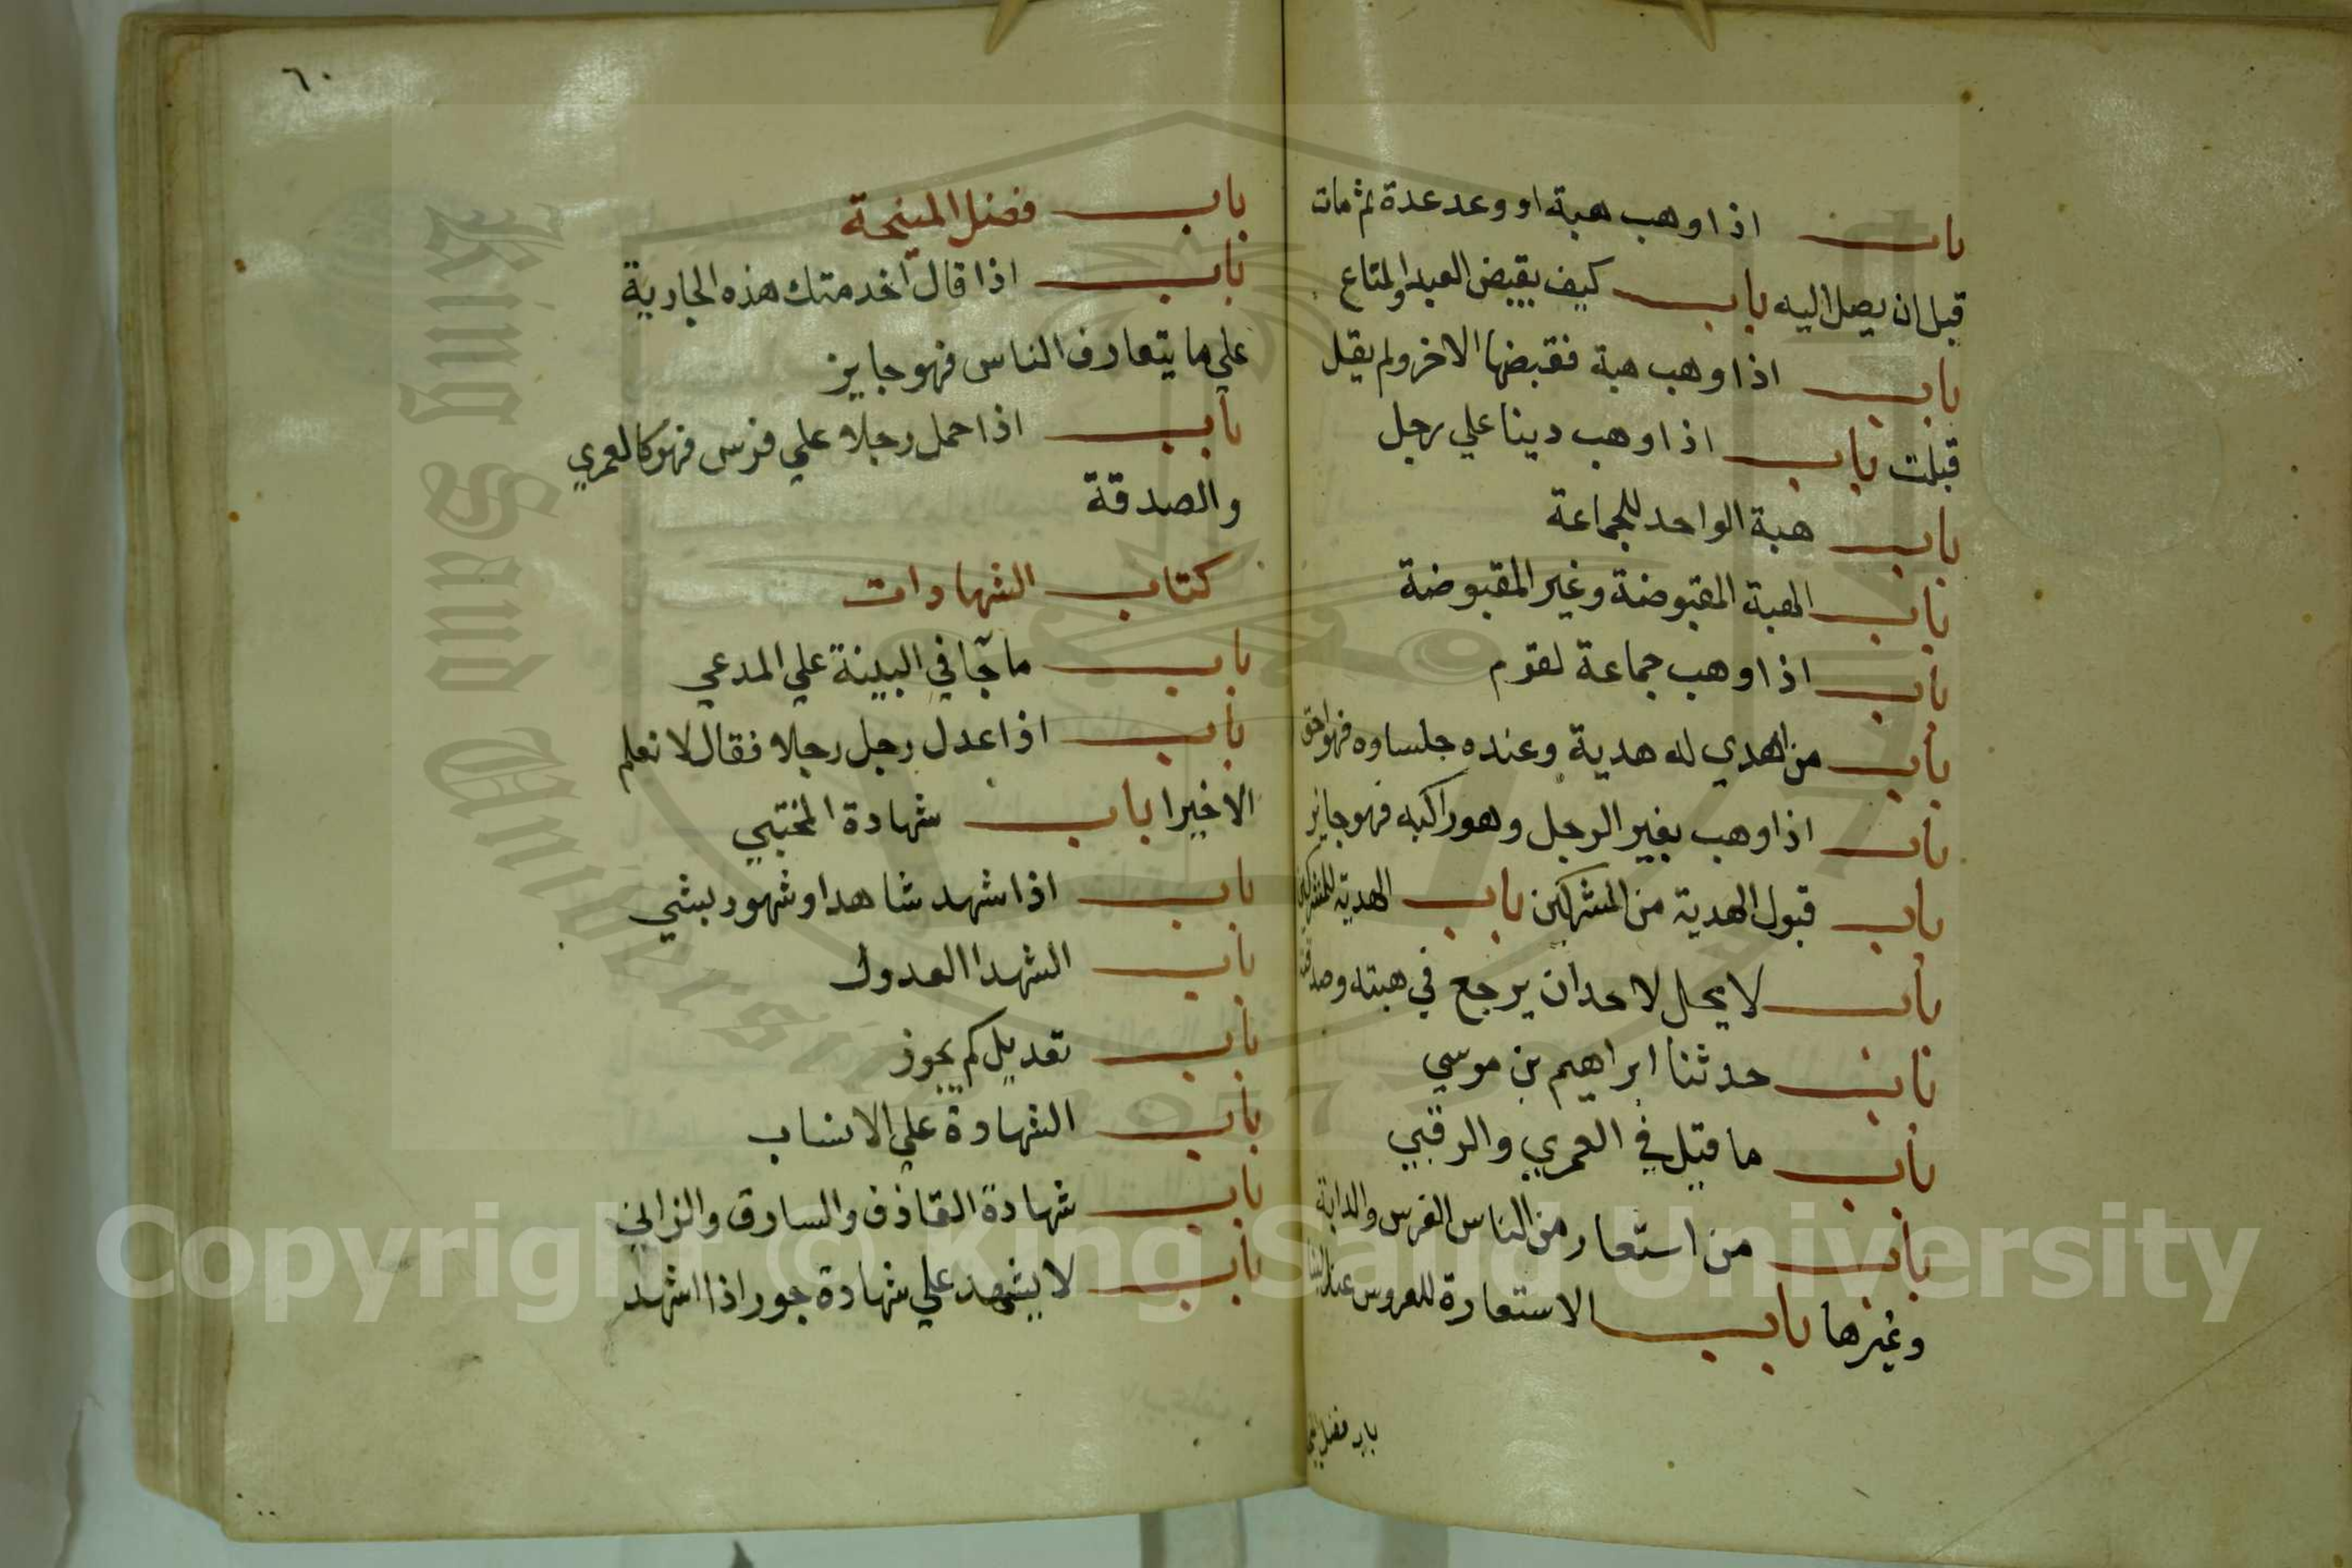 باب اذا وهب هبة او وعد عدة ثم مات
قبل ان يصل اليه باب كيف يقبض العبد والمتاع
باب اذا وهب هبة فقبضها الاخر ولم يقل
قبلت باب اذا وهب دينا علي رجل
باب هبة الواحد للجماعة
باب الهبة المقبوضة وغير المقبوضة
باب اذا وهب جماعة لقوم
باب من اهدي له هدية وعنده جلساوه فهو احق
باب اذا وهب بغير الرجل وهو راكبه فهو جايز
باب قبول الهدية من المشركين باب الهدية للمشركين
باب لا يحل لاحد ان يرجع في هبته وصدقته
باب حدثنا ابراهيم بن موسي
باب ما قيل في العمري والرقبي
باب من استعار من الناس الفرس والدابة
وغيرها باب الاستعارة للعروس عند البنا
باب فضل
٦٠
باب فضل المنيحة
باب اذا قال اخدمتك هذه الجارية
علي ما يتعارف الناس فهو جايز
باب اذا حمل رجلا علي فرس فهو كالعمري
والصدقة
كتاب الشهادات
باب ما جآ في البينة علي المدعي
باب اذا عدل رجل رجلا فقال لا نعلم
الا خيرا باب شهادة المختبي
باب اذا شهد شاهد او شهود بشي
باب الشهدا العدول
باب تعديل كم يجوز
باب الشهادة علي الانساب
باب شهادة القاذف والسارق والزاني
باب لا يشهد علي شهادة جور اذا اشهد
King Saud University
1957
Copyright © King Saud University